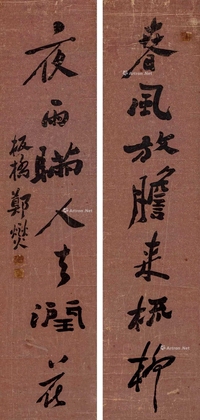 春風放膽来梳柳
夜雨瞞人去潤花
板橋鄭燮
Artron.Net